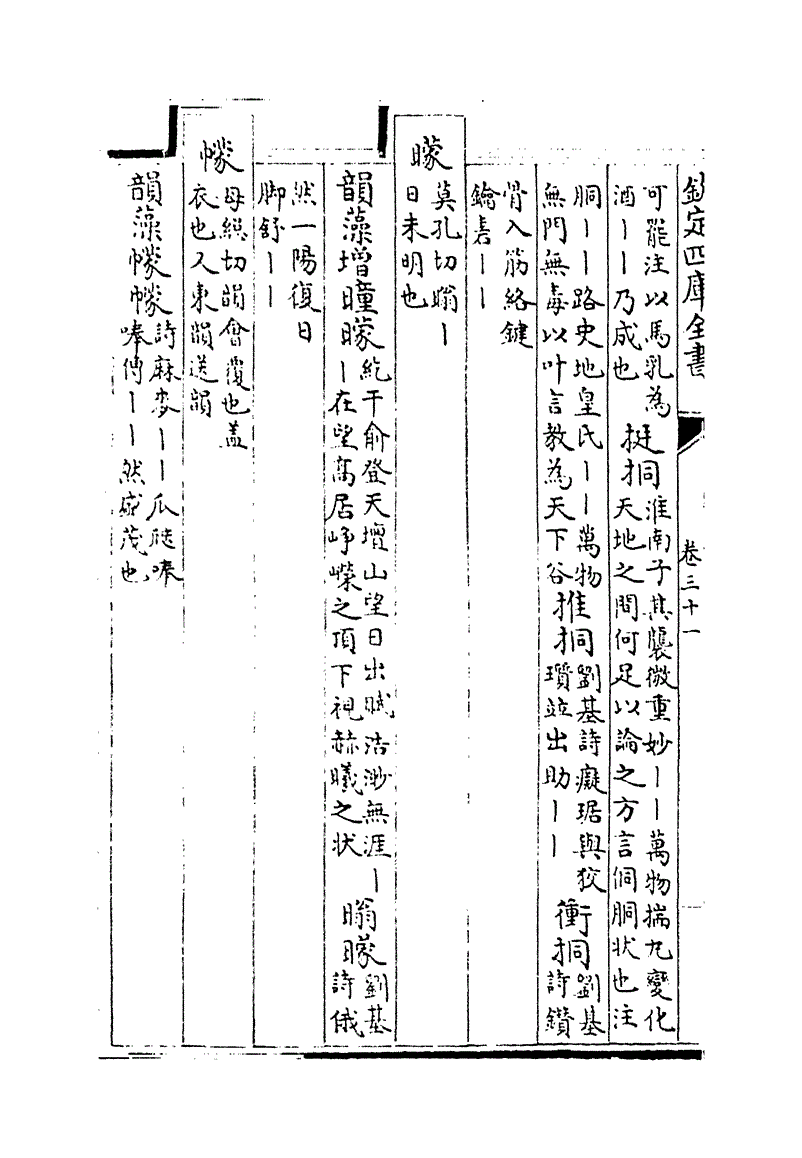 欽定四庫全書
卷三十一
可罷注以馬乳為
酒丨丨乃成也
挺挏
淮南子其襲微重妙丨丨萬物揣丸變化
天地之間何足以論之方言侗胴状也注
胴丨丨路史地皇氏丨丨萬物
無門無毒以叶言教為天下谷
推挏
劉基詩癡琚與狡
瓚竝出助丨丨
衝挏
劉基
詩鑚
骨入筋絡鍵
鑰砉丨丨
曚
莫孔切暡丨
日未明也
韻藻增曈曚
紇干俞登天壇山望日出賦浩渺無涯丨
丨在望高居崢嶸之頂下視赫曦之状
暡曚
劉基
詩俄
然一陽復日
脚舒丨丨
幪
母緫切韻會覆也盖
衣也又東韻送韻
韻藻幪幪
詩麻麥丨丨瓜瓞唪
唪傳丨丨然盛茂也